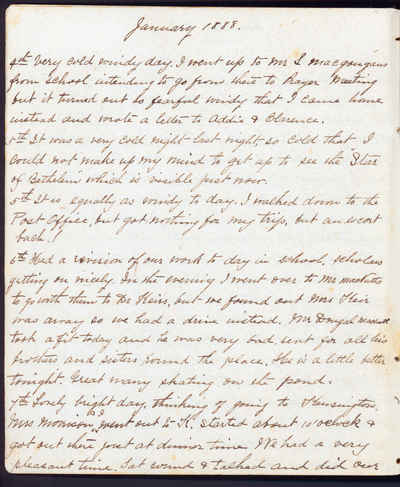 January 1888.
4th Very cold windy day, I went up to Mr L
from school intending to go from there to Prayer Meeting
but it turned out so fearful windy that I came home
instead and wrote a letter to Addie & Clarence.
5th It was a very cold night last night, so cold that I
could not make up my mind to get up to see the "Star
of Bethelem" which is visible just now.
5th It is equally as windy to day. I walked down to the
Post Office, but got nothing for my trip, but an escort
back!
6th Had a revision of our work to day in school, scholars
getting on nicely. In the evening I went over to Mr
to go with them to the Keirs, but we found out Mrs Keir
was away so we had a drive instead. Mr Dougal
took a fit today and he was very bad, sent for all his
brothers and sisters round the place. He is a little better
tonight. Great many skating on the pond.
7th Lovely bright day, thinking of going to Kensington.
Mrs Morrison & I went out to K. started about 10 oclock &
got out there just at dinner time. We had a very
pleasant time. Sat round & talked and did our